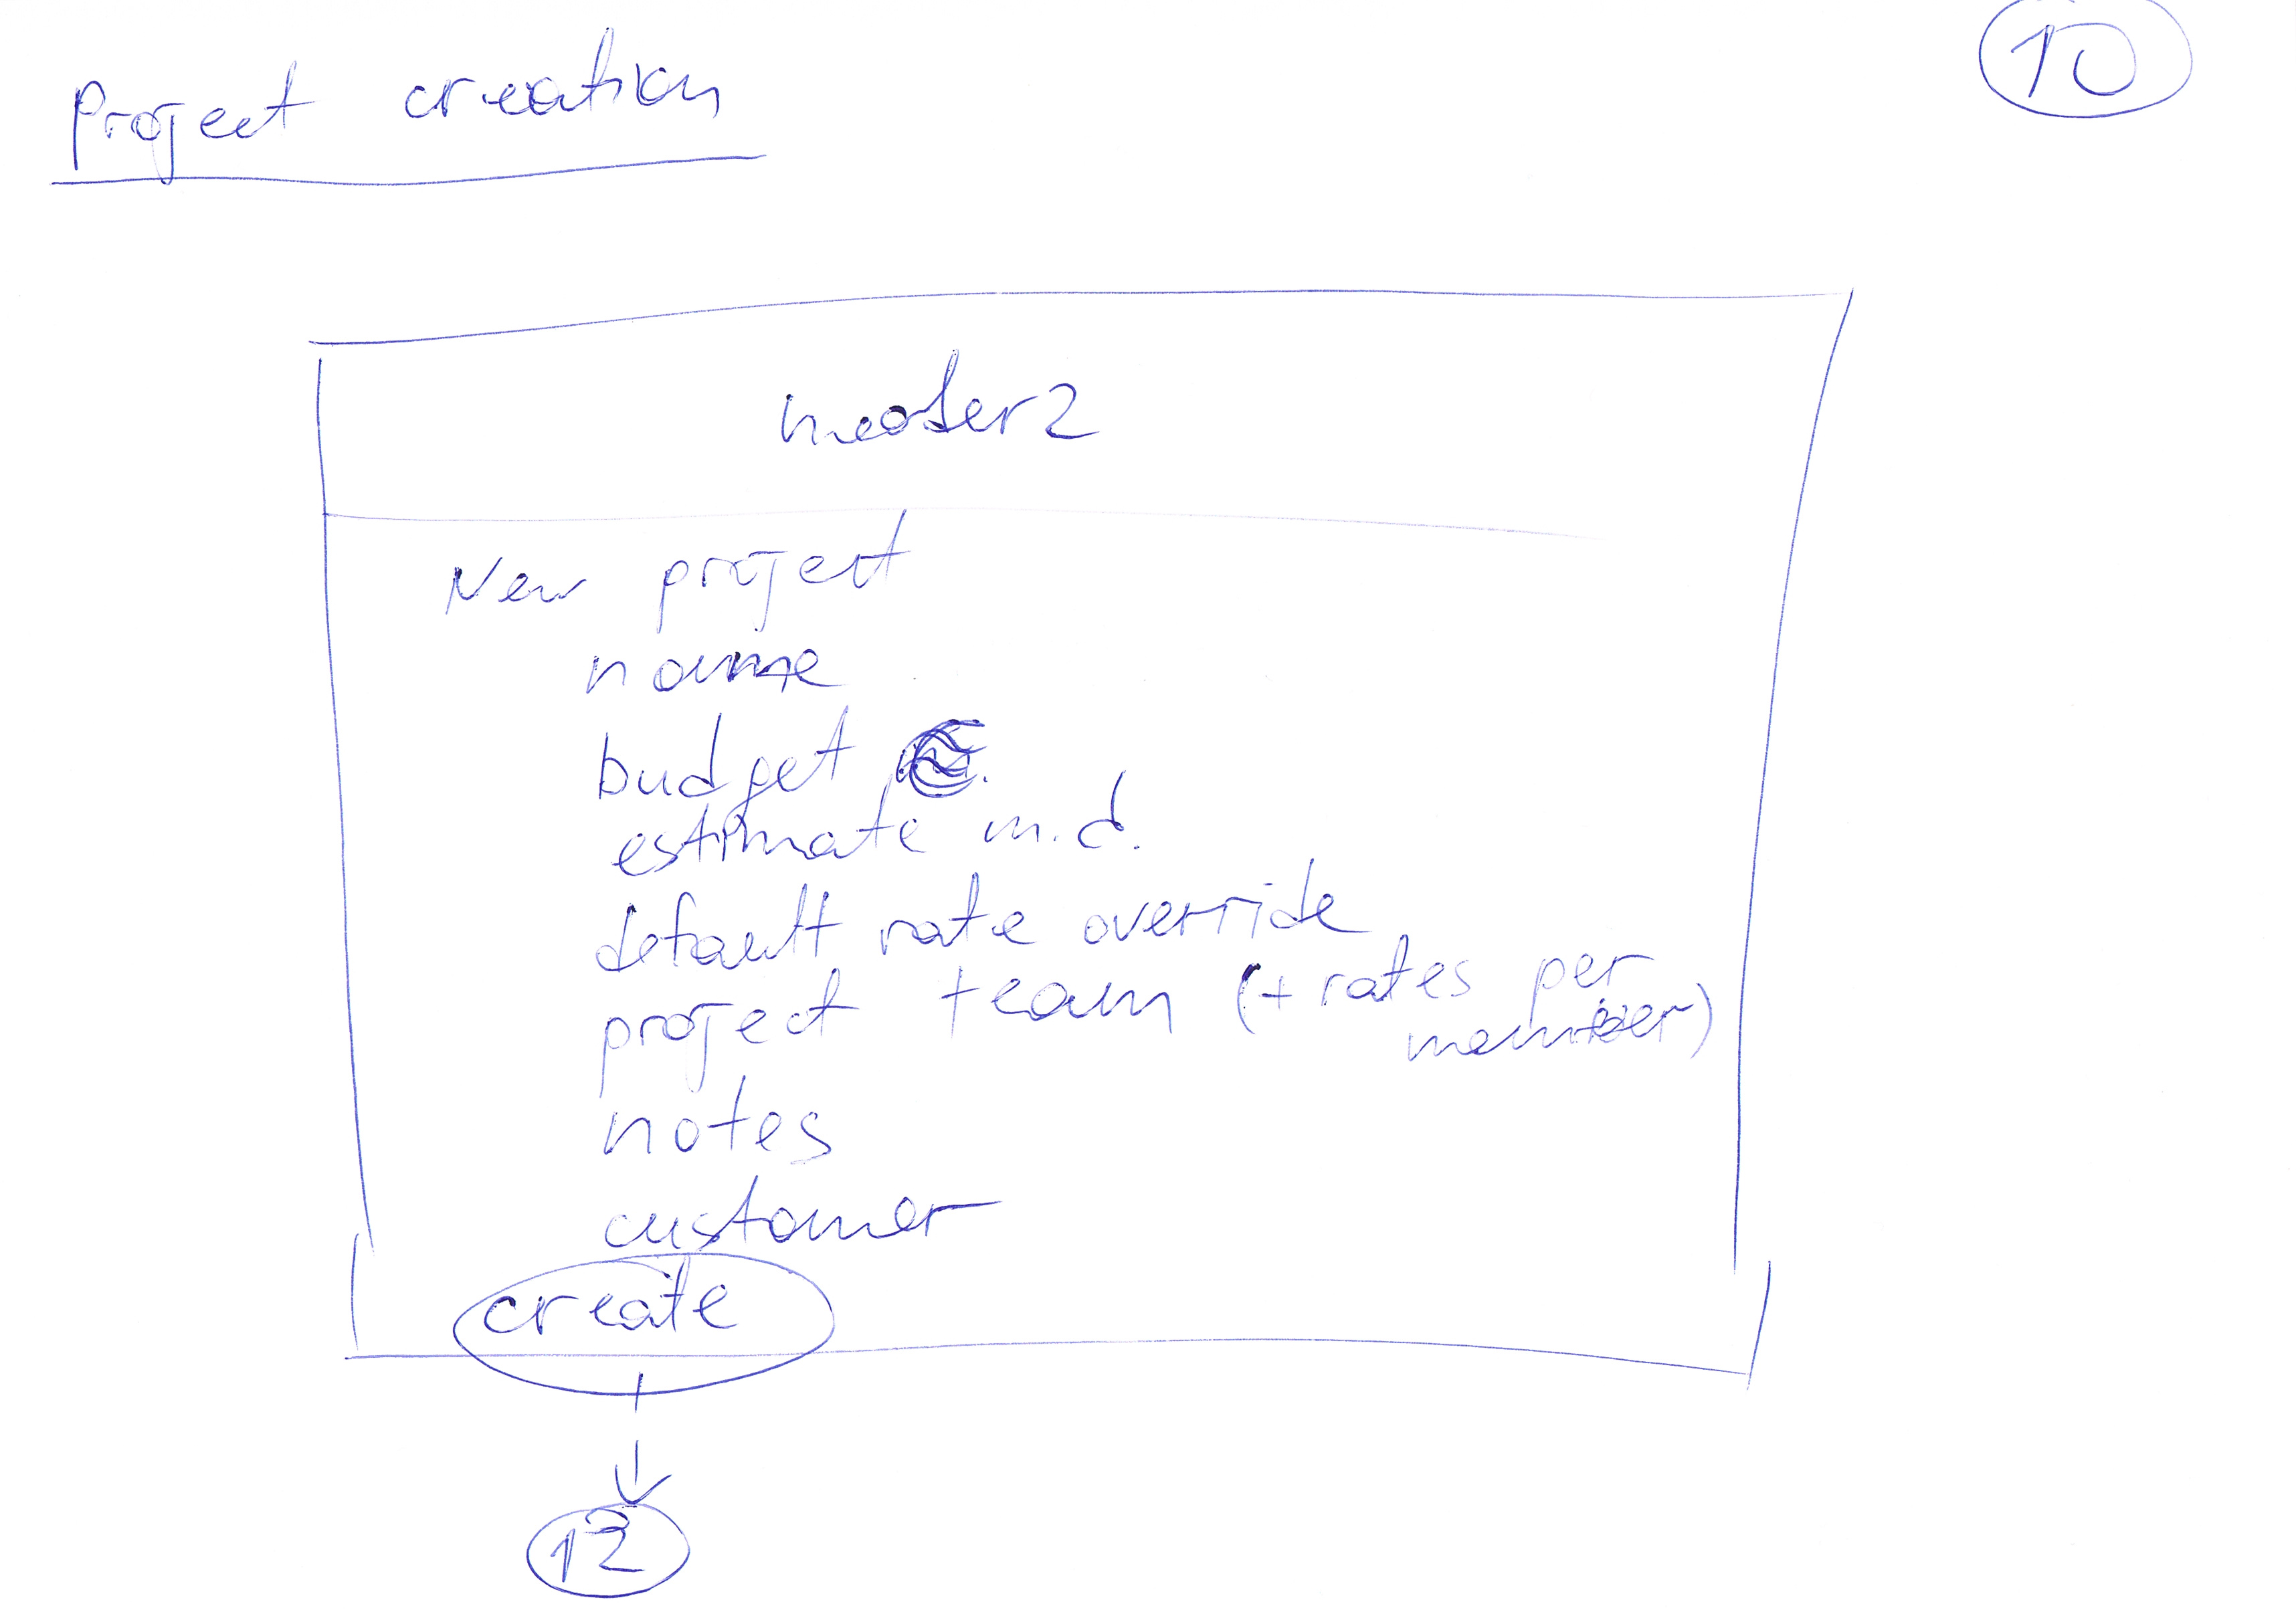 Project creation
10
header2
New project
name
budget
estimate m.d.
default rate override
project team (+ rates per
member)
notes
customer
create
12